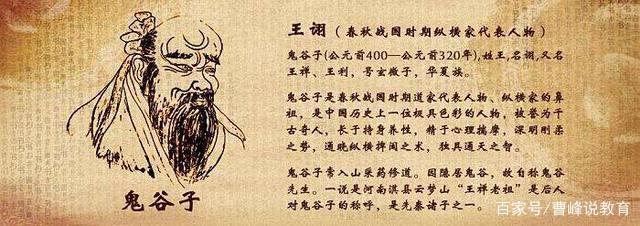 王诩（春秋战国时期纵横家代表人物）
鬼谷子(公元前400—公元前320年),姓王,名诩,又名
王禅、王利，号玄微子，华夏族。
鬼谷子是春秋战国时期道家代表人物、纵横家的鼻
祖，是中国历史上一位极具色彩的人物，被誉为千
古奇人，长于持身养性，精于心理揣摩，深明刚柔
之势，通晓纵横捭阖之术，独具通天之智。
鬼谷子常入山采药修道。因隐居鬼谷，故自称鬼谷
先生。一说是河南淇县云梦山“王禅老祖”是后人
对鬼谷子的称呼，是先秦诸子之一。
鬼谷子
百家号/曹峰说教育